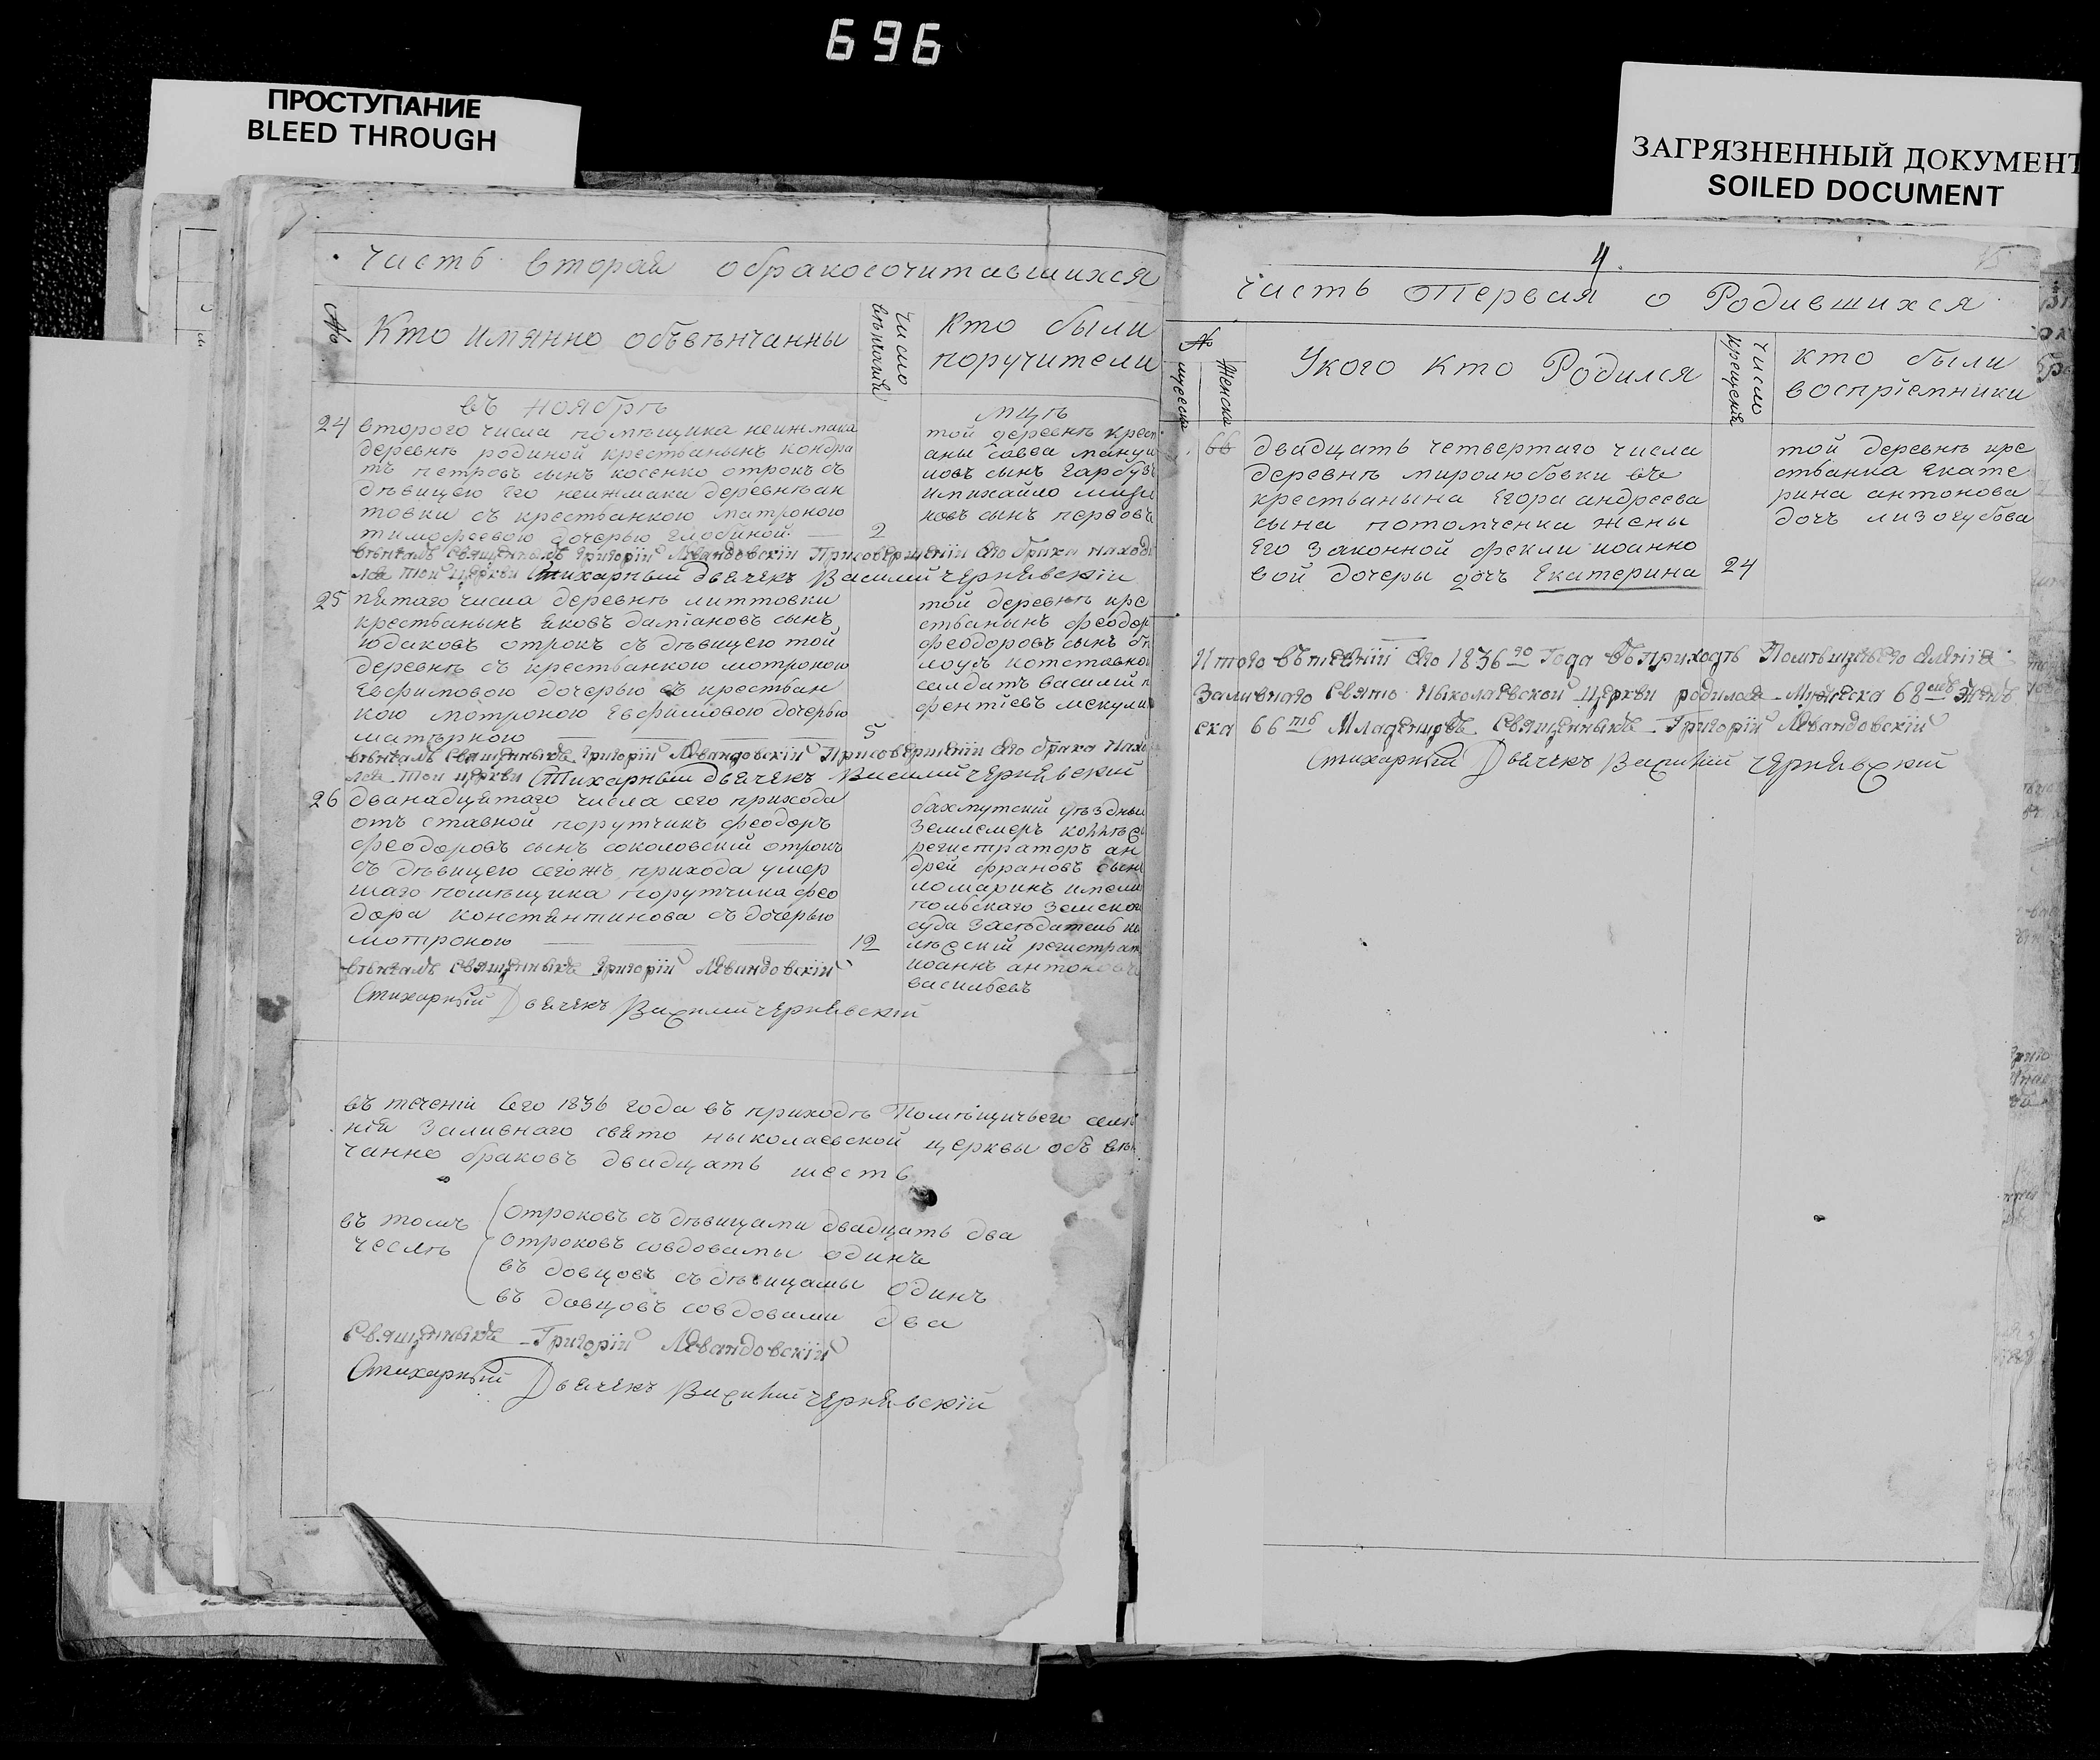 696
ПРОСТУПАНИЕ
BLEED THROUGH
ЗАГРЯЗНЕННЫЙ ДОКУМЕНТ
SOILED DOCUMENT
часть вторая обракосочитавшихся
№
Кто имянно объвѣнчанны
число
вѣнчанія
Кто были
поручители
въ ноябрѣ
мцѣ
24 второго числа помѣщика неижмака
деревнѣ родиной крестьянынъ кондра
тъ петровъ сынъ косенко отрокъ съ
дѣвицею его неижмака деревнѣ ан
товки съ крестьанкою матроною
тимофеевою дочерью глобиной
2
той деревнѣ крест
аны савва
новъ сынъ гарбузъ
имихайло
новъ сынъ первовъ
вѣнчалъ Священныкъ Григорій Левандовскій Присовершеніи Сего брака находи
лся той церкви Стихарный дьячекъ Василий Чернявскій
25 пятаго числа деревнѣ литтовки
крестьанынъ яковъ даміановъ сынъ
юдаковъ отрокъ съ дѣвицею той
деревнѣ съ крестьанкою мотроною
Евфимовою дочерью съ крестьан
кою мотроною Евфимовою дочерью
5
той деревнѣ кре
стьанынъ феодор
феодоровъ сынъ бѣ
лоусъ иотставной
салдатъ василий
фентіевъ
вѣнчалъ Священныкъ Григорій Левандовскій Присовершеніи Сего брака Нахо
лся той церкви Стихарный дьячекъ Василий Чернявский
26 дванадцятаго числа сего прихода
отъ ставной порутчикъ феодоръ
феодоровъ сынъ соколовскій отрокъ
съ дѣвицею сегожъ прихода умер
шаго помѣщика порутчика фео
дора константинова съ дочерью
мотроною
12
бахмутский уѣздный
землемеръ коллѣс
регистраторъ ан
дрей франовъ сынъ
ломаринъ имели
польскаго земског
суда засѣдатель ко
лѣскій регистрат
иоаннъ антоновъ
васильевъ
вѣнчалъ Священныкъ Григорій Левандовскій
Стихарный Дьячекъ Василий Чернявскій
въ теченіи Сего 1836 года въ приходѣ Помѣщичьего селе
нія Заливнаго свято ныколаевской церквы объ вѣн
чанно браковъ двадцать шесть
въ томъ
числѣ
отроковъ съ дѣвицами двадцать два
отроковъ совдовамы одинъ
въ довцовъ съ дѣвицамы одинъ
въ довцовъ совдовами два
Священныкъ Григорій Левандовскій
Стихарный Дьячекъ Василий Чернявскій
4
15
Часть Первая о Родившихся
№
мужеска
Женска
Укого Кто Родился
число
крещенія
кто были
воспріемники
66 двадцать четвертаго числа
деревнѣ миролюбовки въ
крестьанына Егора андреева
сына потомченка жены
Его Законной фекли иоанно
вой дочеры дочъ Екатерина
24
той деревнѣ кре
стьанка Екате
рина антонова
дочъ лизогубова
Итого въ теченіи Сего 1836го Года въ приходѣ Помѣщичьего селенія
Заливнаго Свято Ныколаевской Церкви родилося Мужеска 68 Жен
ска 66ть Младенцовъ Священныкъ Григорій Левандовскій
Стихарный Дьячекъ Василий Чернявский